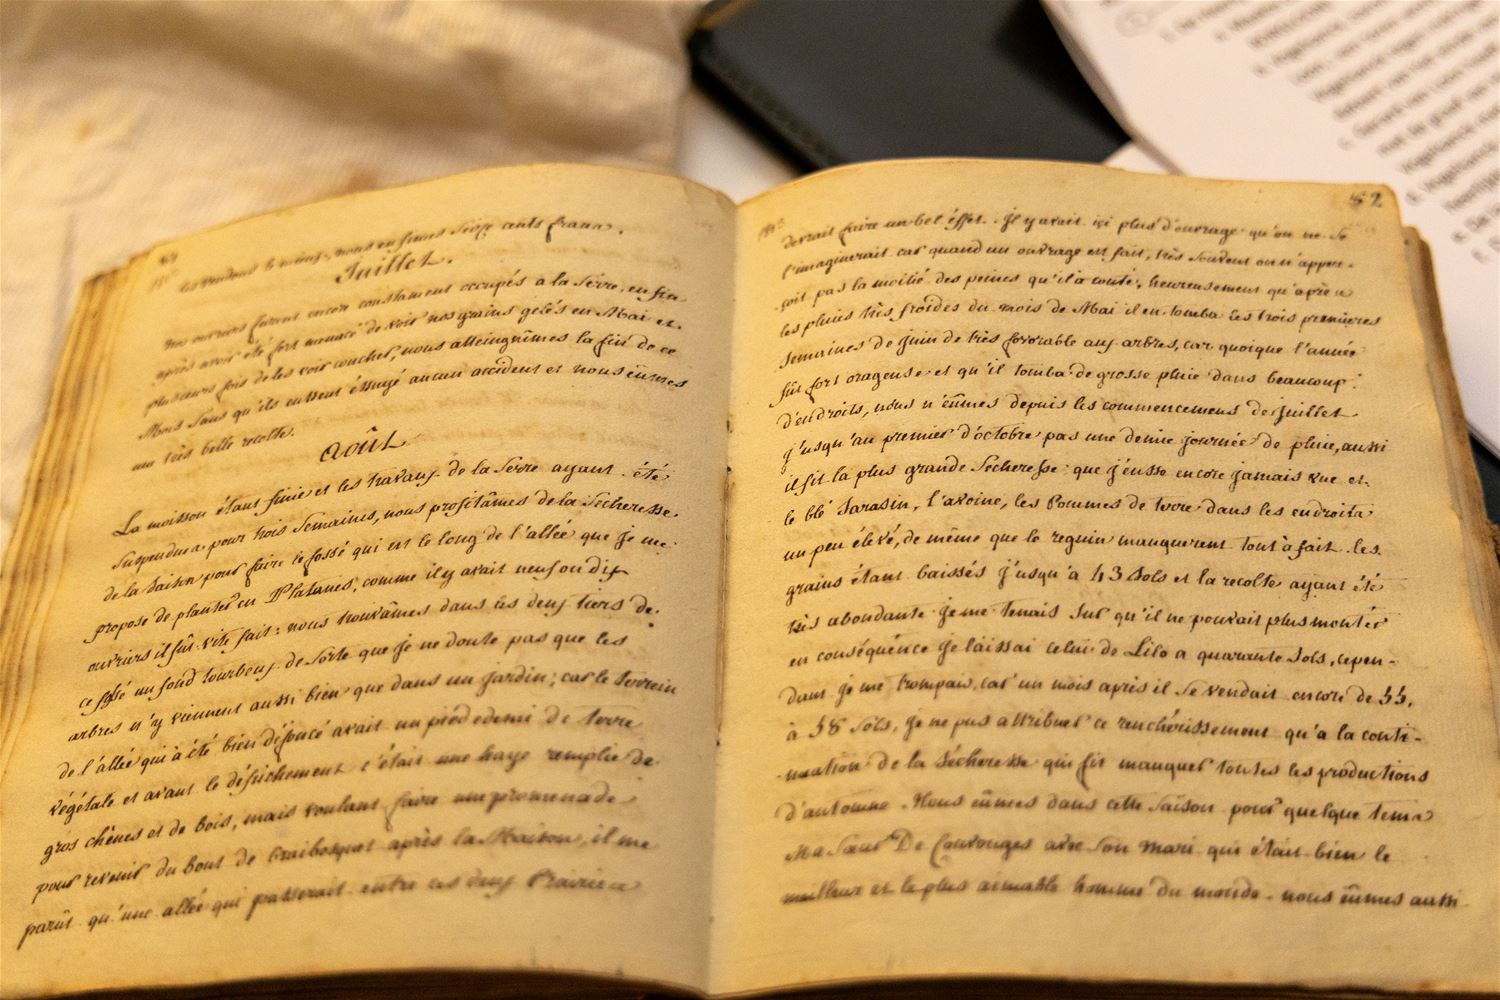 les vendant le moins, nous en fîmes Seize cents francs.
Juillet.
nos ouvriers furent encore constament occupés a la Serre, enfin
après avoir été fort menacé de voir nos grains gelés en Mai et
plusieurs fois de les voir coucher, nous atteingnîmes la fin de ce
Mois Sans qu'ils eussent éssuyé aucun accident et nous eûmes
une très belle recolte.
Août
La moisson étant finie et les travaux de la Serre ayant été
Suspendues pour trois Semaines, nous profitâmes de la Sécheresse
de la Saison pour faire le fossé qui est le long de l'allée que je me
propose de planter en Platanes, comme il y avait neuf ou dix
ouvriers il fût vite fait : nous trouvâmes dans les deux tiers de
ce fossé un fond tourbeux de Sorte que je ne doute pas que les
arbres n'y viennent aussi bien que dans un jardin ; car le terrein
de l'allée qui à été bien défoncé avait un pied et demi de terre
végétale et avant le défrichement c'était une haye remplie de
gros chênes et de bois, mais voulant faire une promenade
pour revenir du bout de Craibosquet après la Maison, il me
parût qu'une allée qui passerait entre ces deux Prairies
52
devrait faire un bel éffet. Il y avait içi plus d'ouvrage qu'on ne Se
l'imaginerait car quand un ouvrage est fait, très Souvent on n'apper-
çoit pas la moitié des peines qu'il à couté, heureusement qu'après
les pluies très froides du mois de Mai il en tomba les trois premières
Semaines de Juin de très favorable aux arbres, car quoique l'année
fût fort orageuse et qu'il tomba de grosse pluie dans beaucoup
d'endroits, nous n'eûmes depuis les commencemens de juillet
j'usqu'au premier d'octobre pas une demie journée de pluie, aussi
il fit la plus grande Secheresse que j'eusse encore jamais vue et
le blé Sarasin, l'avoine, les Pommes de terre dans les endroits
un peu élevé, de même que le reguin manquerent tout à fait. les
grains étant baissés j'usqu'à 43 Sols et la recolte ayant été
très abondante je me tenais Sur qu'il ne pouvait plus monter
en conséquence je laissai celui de Lilo a quarante Sols, cepen-
dant je me trompais, car un mois après il Se vendait encore de 55,
à 58 Sols, je ne pus attribuer ce renchérissement qu'a la conti-
nuation de la Sécheresse qui fit manquer toutes les productions
d'automne. Nous eûmes dans cette Saison pour quelque tems
Ma Sœur De Couronges avec Son mari qui était bien le
meilleur et le plus aimable homme du monde. nous eûmes aussi